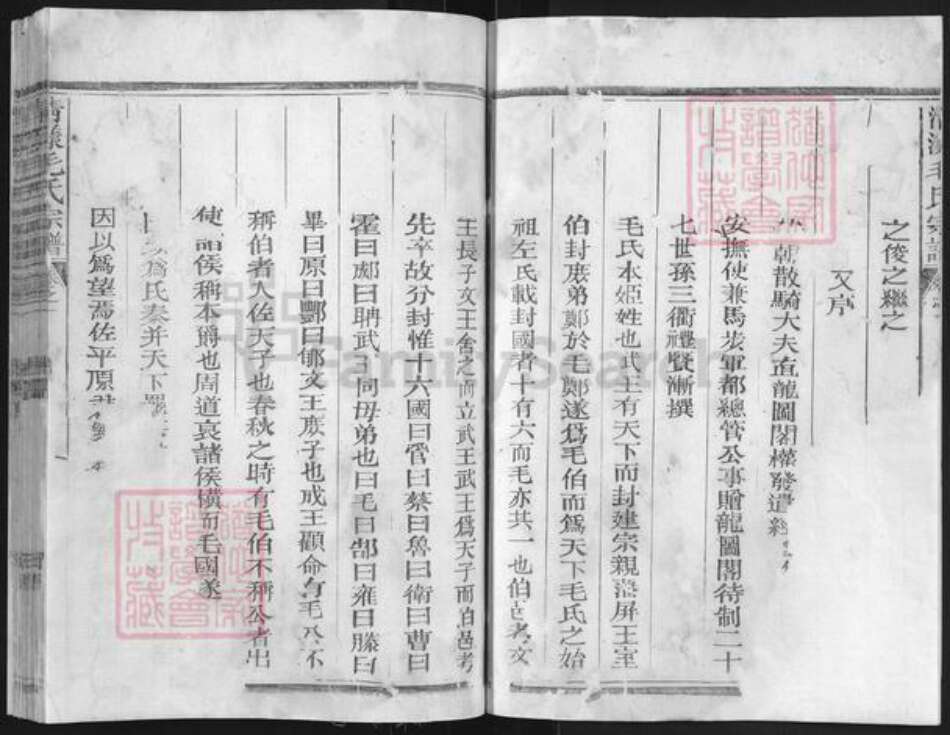 之後之繼之
又序
朝散騎大夫直龍圖閣權發遣
安撫使兼馬步軍都總管公事贈龍圖閣待制二十
七世孫三衢禮賢漸撰
毛氏本姬姓也武王有天下而封建宗親藩屏王室
伯封庶弟鄭於毛鄭遂爲毛伯而爲天下毛氏之始
祖左氏載封國者十有六而毛亦其一也伯邑考文
王長子文王舍之而立武王武王爲天子而伯邑考
先卒故分封惟十六國曰管曰蔡曰魯曰衛曰曹曰
霍曰郕曰聃武王同母弟也曰毛曰郜曰雍曰滕曰
畢曰原曰酆曰郇文王庶子也成王顧命有毛公不
稱伯者入佐天子也春秋之時有毛伯不稱公者出
使諸侯稱本爵也周道衰諸侯橫而毛國遂
爲氏秦并天下罷
因以爲望焉佐平原君
清漾毛氏宗譜
清漾毛氏宗譜
FamilySearch